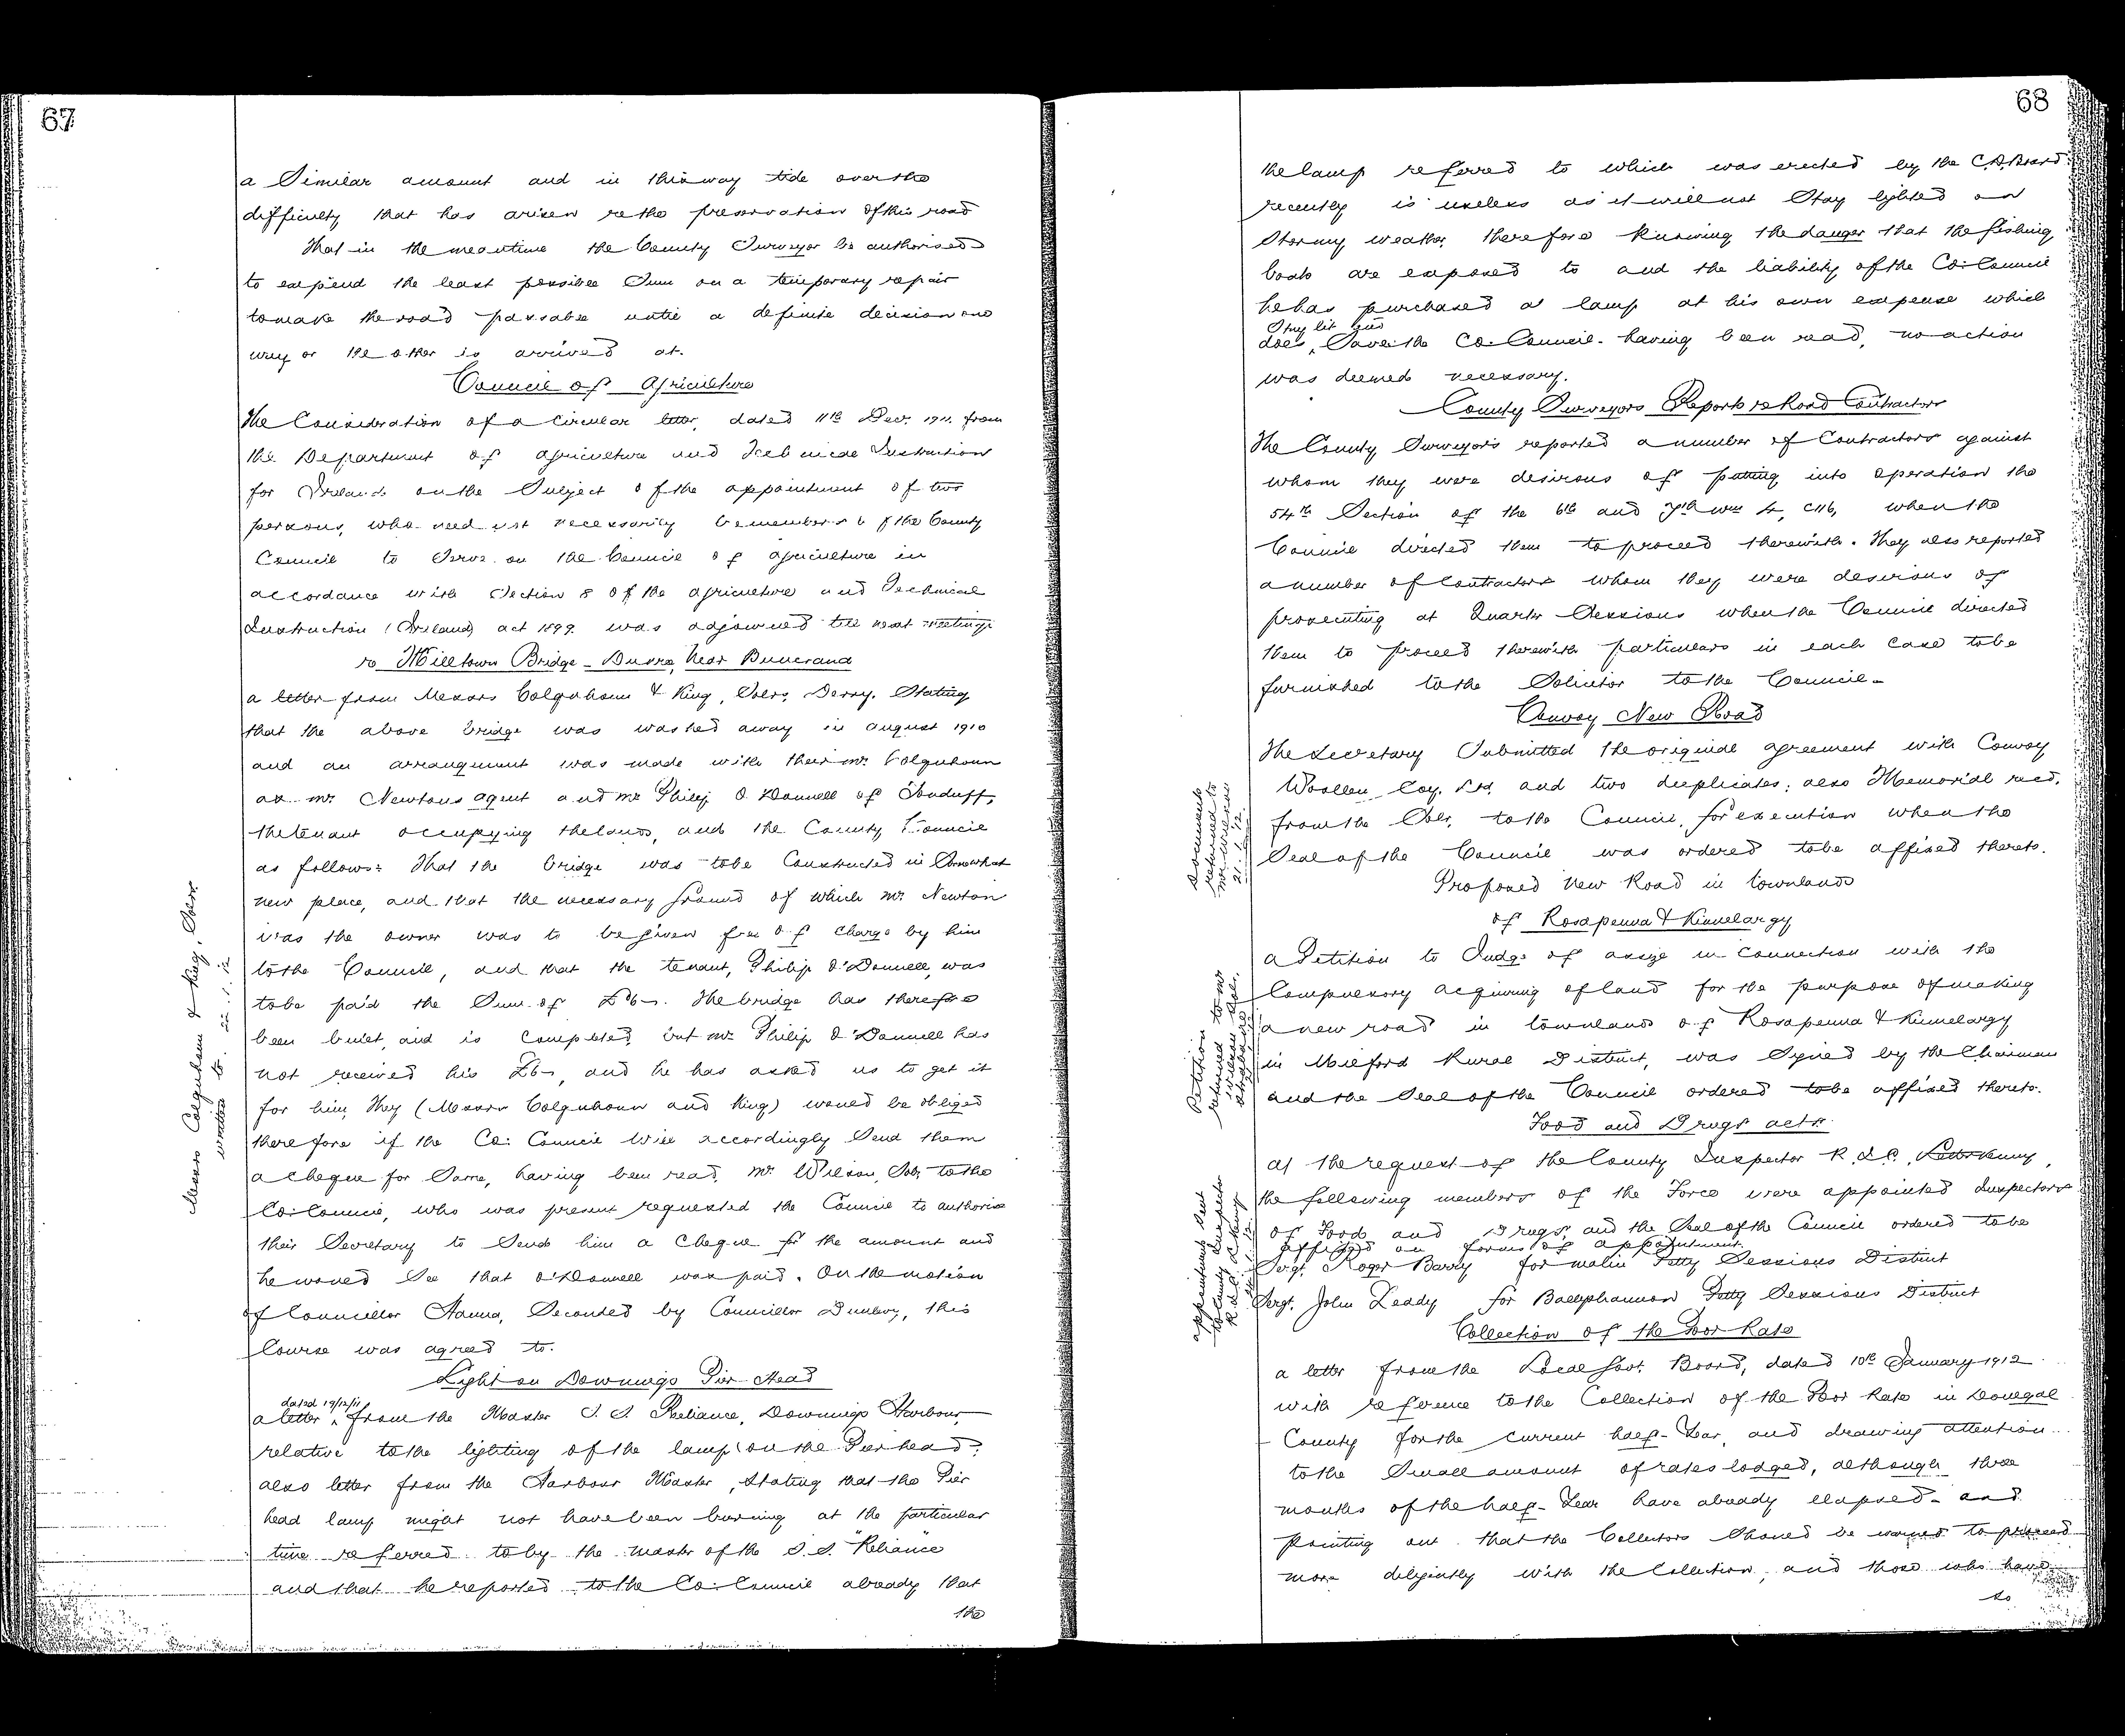 67
a Similar amount and in this way tide over the
difficulty that has arisen re the preservation of this road
That in the meantime the County Surveyor be authorised
to expend the least possible Sum on a temporary repair
to make the road passable until a definite decision one
way or the other is arrived at.
Council of Agriculture
The Consideration of a Circular letter, dated 11th Dec. 1911. from
the Department of Agriculture and Technical Instruction
for Ireland on the Subject of the appointment of two
persons, who need not necessarily be members of the County
Council to Serve on the Council of Agriculture in
accordance with Section 8 of the Agriculture and Technical
Instruction (Ireland) act 1899. was adjourned till next meeting.
re Milltown Bridge - Burra, Near Buncrana
a letter from Messrs Colquhoun & King, Solrs, Derry. Stating
that the above bridge was washed away in August 1910
and an arrangement was made with their Mr. Colquhoun
as Mr. Newtons agent and Mr Philip O'Donnell of
the tenant occupying the lands, and the County Council
as follows: That the bridge was to be Constructed in Somewhat
new place, and that the necessary ground of which Mr. Newton
was the owner was to be given free of charge by him
to the Council, and that the tenant, Philip O'Donnell, was
to be paid the Sum of £6-. The bridge has therefore
been built, and is completed, but Mr Philip O'Donnell has
not received his £6-, and he has asked us to get it
for him, They (Messrs Colquhoun and King) would be obliged
therefore if the Co: Council will accordingly Send them
a cheque for Same, having been read, Mr. Wilson, Solr, to the
Co: Council, who was present requested the Council to authorise
their Secretary to Send him a Cheque for the amount and
he would See that O'Donnell was paid. On the motion
of Councillor Hanna, Seconded by Councillor Dunlevy, this
Course was agreed to.
Messrs Colquhoun & King, Solrs.
written to. 22.1.12
Light on Downings Pier-Head
dated 19/12/11
a letter, from the Master S.S. Reliance, Downings Harbour,
relative to the lighting of the lamp on the Pier head;
also letter from the Harbour Master, Stating that the Pier
head lamp might not have been burning at the particular
time referred to by the Master of the S.S. "Reliance"
and that he reported to the Co: Council already that
the
68
the lamp referred to which was erected by the C.D. Board
recently is useless as it will not Stay lighted on
Stormy weather, therefore knowing the danger that the fishing
boats are exposed to and the liability of the Co: Council
he has purchased a lamp at his own expense which
Stay lit and
does, Save the Co. Council. having been read, no action
was deemed necessary.
County Surveyors Reports re Road Contractors
The County Surveyors reported a number of Contractors against
whom they were desirous of putting into operation the
54th Section of the 6th and 7th Wm 4, C116, when the
Council directed them to proceed therewith. They also reported
a number of Contractors whom they were desirous of
prosecuting at Quarter Sessions when the Council directed
them to proceed therewith particulars in each case to be
furnished to the Solicitor to the Council.
Convoy New Road
The Secretary Submitted the original agreement with Convoy
Woollen Coy. Ltd. and two duplicates; also Memorial recd.
from the Solr. to the Council, for execution when the
Seal of the Council was ordered to be affixed thereto.
Documents
returned to
Mr Wilson
21.1.12.
Proposed New Road in townlands
of Rosapenna & Kinnelargy
a Petition to Judge of assize in Connection with the
Compulsory acquiring of land for the purpose of making
a new road in townlands of Rosapenna & Kinnelargy
in Milford Rural District, was Signed by the Chairman
and the Seal of the Council ordered to be affixed thereto.
Petition to Mr
returned
Wilson Solr.
Food and Drugs acts
at the request of the County Inspector R.I.C., Letterkenny,
the following members of the Force were appointed Inspectors
of Food and Drugs, and the Seal of the Council ordered to be
affixed on forms of appointment.
Sergt. Roger Barry for Malin Petty Sessions District
Sergt. John Leddy for Ballyshannon Petty Sessions District
Appointments sent
to County Inspector
R.I.C. L'Kenny
Collection of the Poor Rate
a letter from the Local Govt. Board, dated 10th January 1912
with reference to the Collection of the Poor Rate in Donegal
County for the current half-Year, and drawing attention
to the Small amount of rates lodged, although three
months of the half-Year have already elapsed - and
pointing out that the Collectors Should be warned to proceed
more diligently with the Collection, and those who have
to